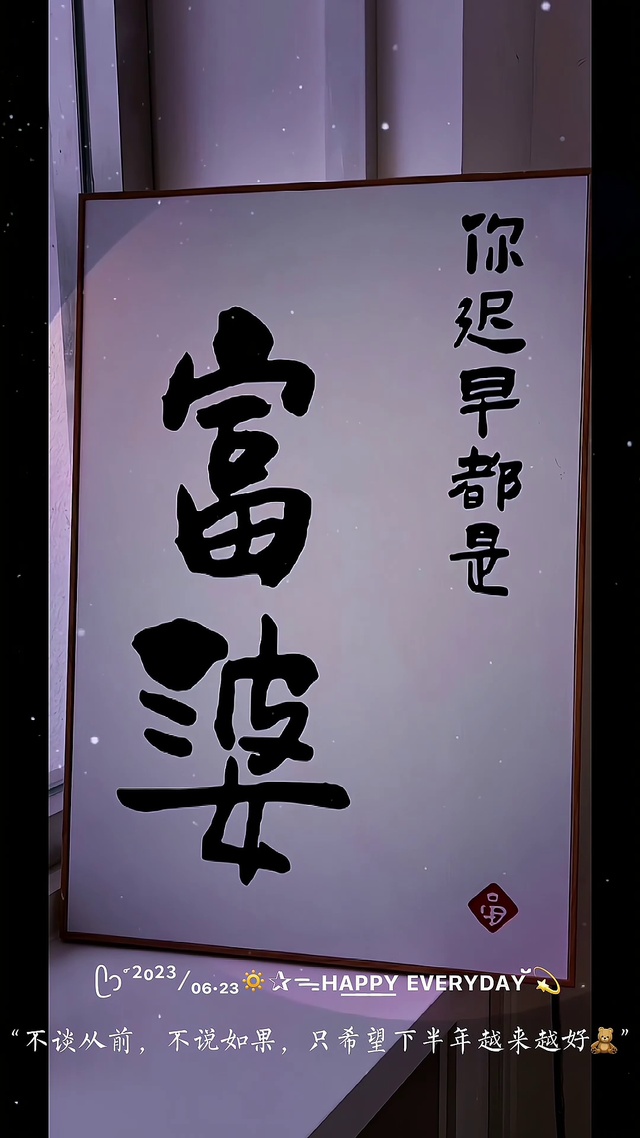 你迟早都是
富婆
富
2023/06.23🔅☆HAPPY EVERYDAY💫
“不谈从前，不说如果，只希望下半年越来越好🧸”